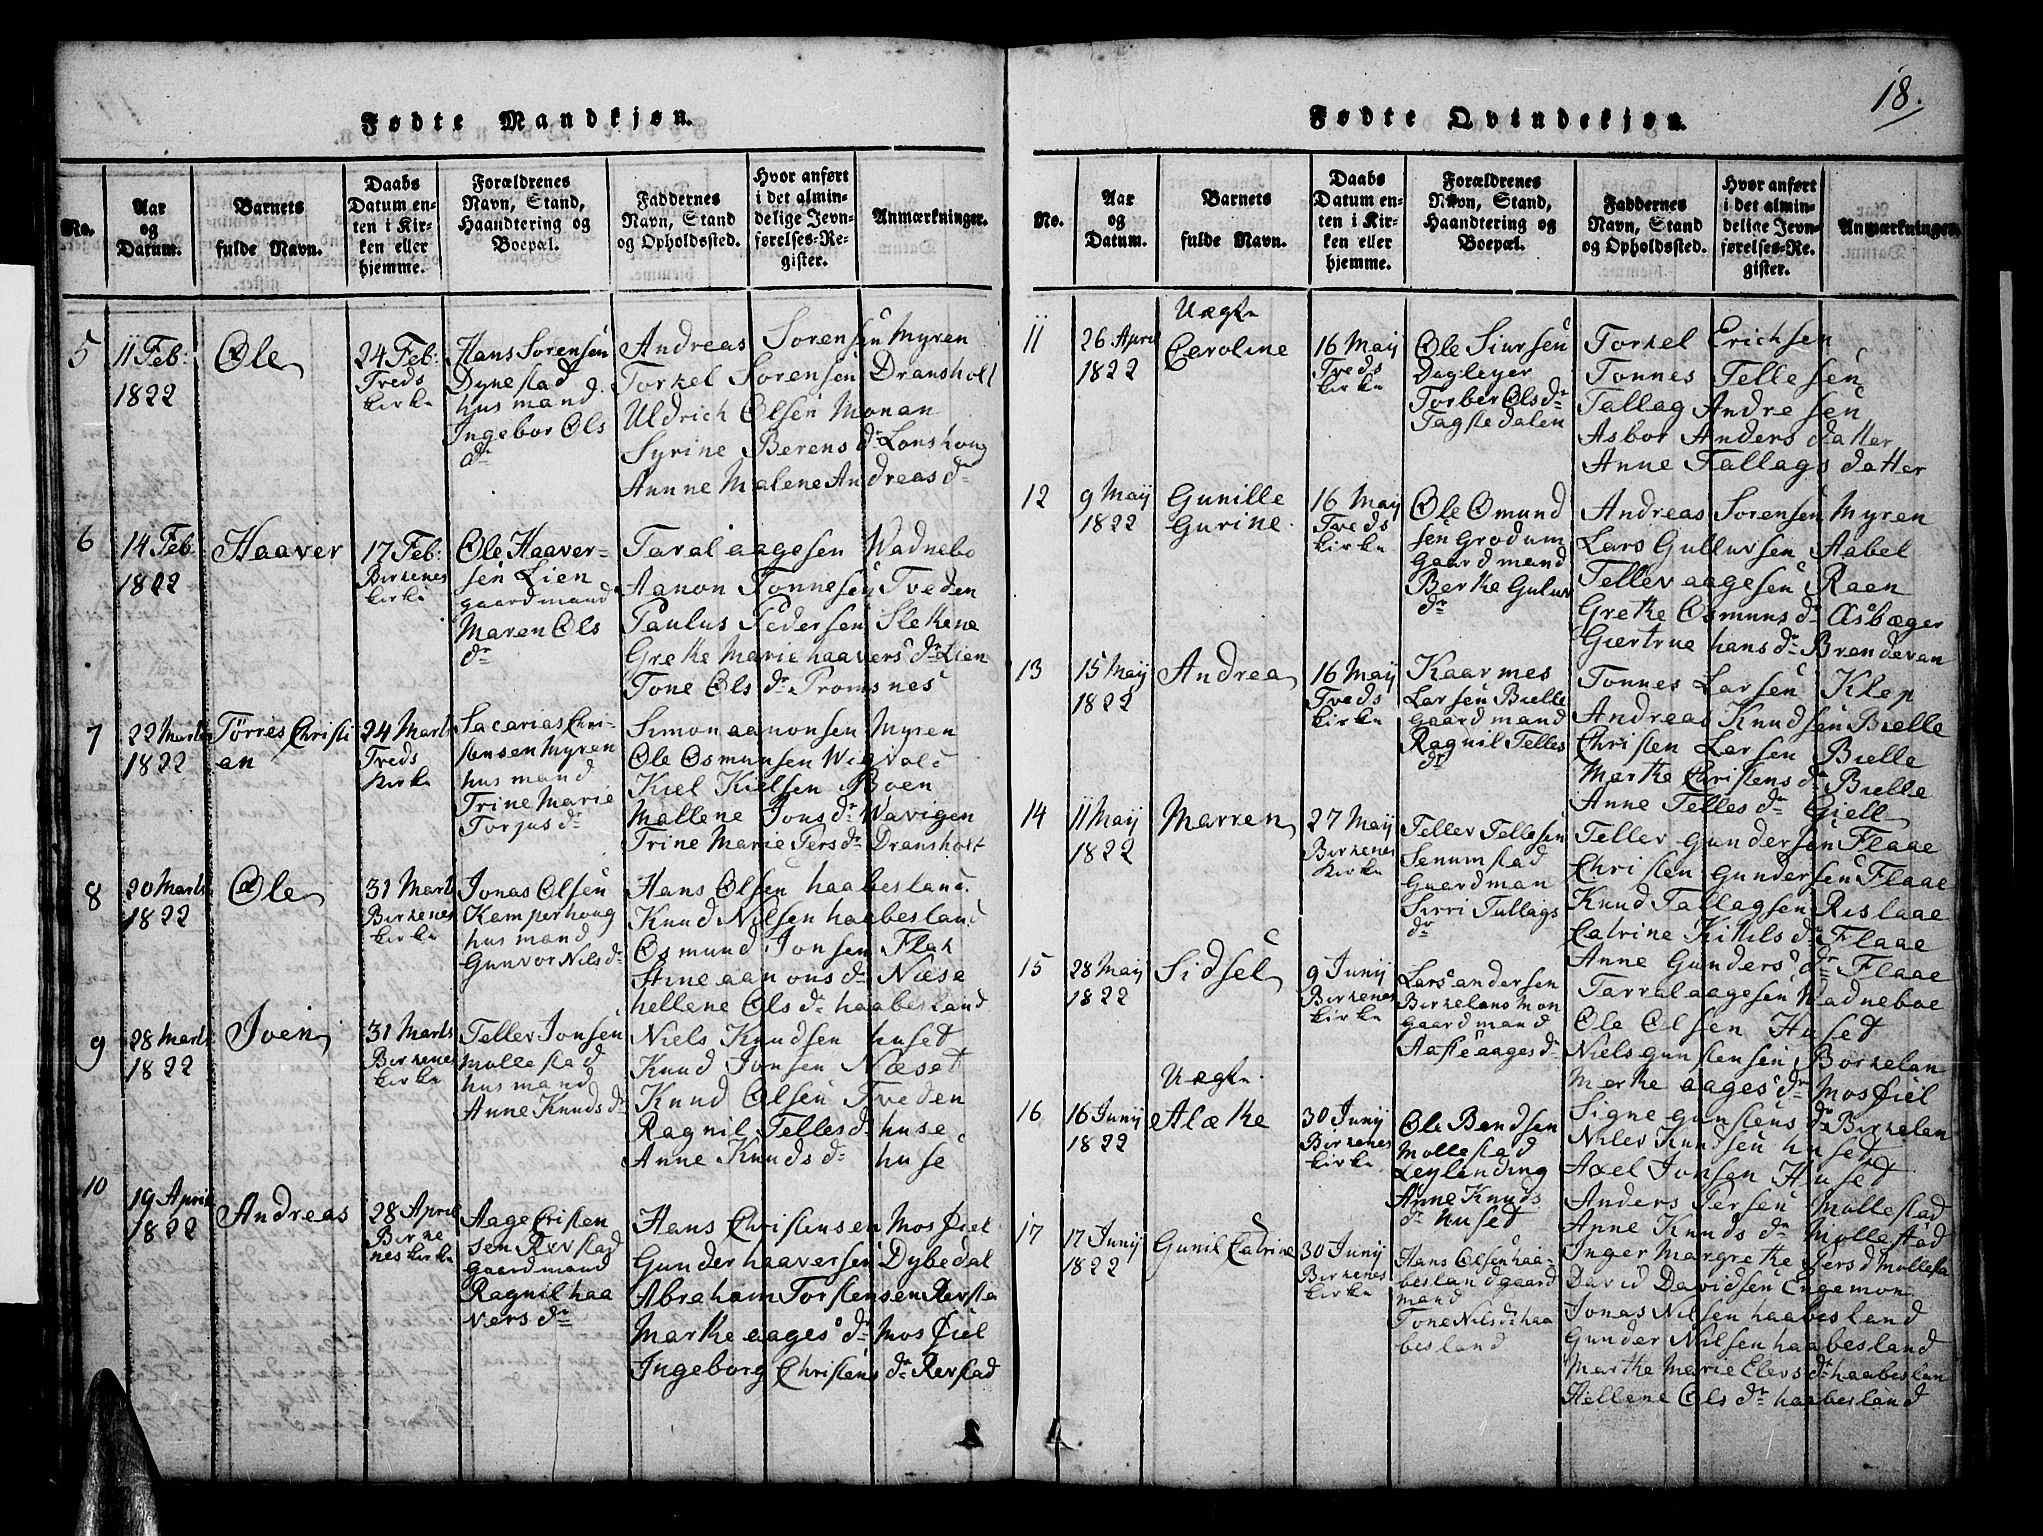 18.
Fødte Mandkjøn.
No.
Aar og Datum.
Barnets fulde Navn.
Daabs Datum enten i Kirken eller hjemme.
Forældrenes Navn, Stand, Haandtering og Boepæl.
Faddernes Navn, Stand og Opholdssted.
Hvor anført i det almindelige Jevnførelses-Register.
Anmærkninger.
5
11 Feb:
1822
Ole
24 Feb:
Treds
kirke
Hans Sorensen
Dynestad
husmand
Ingebor Ols
dr
Andreas Sorensen Myren
Torkel Sorensen Dransholt
Uldrich Olsen Monan
Syrine Berens dr Lonshoug
Annne Malene Andreas dr
6
14 Feb
1822
Haaver
17 Feb:
Birkenes
kirke
Ole Haaver-
sen Lien
gaardmand
Maren Ols
dr
Taral aagesen Wadnebo
Aanon Tonnesen Tveden
Paulus Pedersen Slekene
Grethe Marie haavers dr Lien
Tone Ols dr Promsnes
7
22 Marts
1822
Tørres Christi
an
24 Marts
Treds
Kirke
Sacarias Chri-
stensen Myren
husmand
Trine Marie
Torjus dr
Simon aanonsen Myren
Ole Osmunsen Wigvald
Kiel Kielsen Boen
Mallene Jons dr Wavigen
Trine Marie Pers dr Dransholt
8
20 Marts
1822
Ole
31 Marts
Birkenes
kirke
Jonas Olsen
Kemperhoug
husmand
Gunvor Nils dr
Hans Olsen haabesland.
Knud Nilsen haabesland
Osmund Jonsen Flak
Stine aanons dr Næse
hellene Ols dr haabesland
9
28 Marts
1822
Iven
31 Marts
Birkenes
kirke
Teller Jonsen
Mollestad
husmand
Anne Knuds dr
Niels Knudsen huset
Knud Jonsen Næset
Knud Olsen Tveden
Ragnil Telles d. huse
Anne Knuds dr huse
10
19 April
1822
Andreas
28 April
Birke
nes kirke
Aage Cristen
sen Revstad
gaardmand
Ragnil haa
vers dr
Hans Christensen Mosfiel
Gunder haaversen Dybedal
Abraham Torstensen Revsta
Marthe aages dr Mosfiel
Ingeborg Christens dr Revstad
Fødte Qvindekjøn.
No.
Aar og Datum.
Barnets fulde Navn.
Daabs Datum enten i Kirken eller hjemme.
Forældrenes Navn, Stand, Haandtering og Boepæl.
Faddernes Navn, Stand og Opholdssted.
Hvor anført i det almindelige Jevnførelses-Register.
Anmærkninger.
11
26 April
1822
Uægte
Caroline
16 Maij
Treds
kirke
Ole Siursen
Dagleyer
Torber Ols dr
Tagstedalen
Torkel Erichsen
Tonnes Tellesen
Tallag Andresen
Asbor Anders datter
Anne Tallags datter
12
9 Maij
1822
Gunille
Gurine.
16 Maij
Treds
kirke
Ole Omund
sen Grodum
gaardmand
Berthe Guluv
dr
Andreas Sorensen Myren
Lars Gulluvsen Aabel
Tellev aagesen Raen
Grethe Osmuns dr Asbæger
Giertrue hans dr Brendevan
13
15 Maij
1822
Andrea
16 Maij
Treds
kirke
Kaarmes
Larsen Bielle
Gaardmand
Ragnil Telles
dr
Tonnes Larsen Klep
Andreas Knudsen Bielle
Christen Larsen Bielle
Marthe Christens dr Bielle
Anne Telles dr Gjell
14
11 Maij
1822
Marren
27 Maij
Birkenes
kirke
Teller Tellesen
Senumstad
Guardman
Sirri Tullags
dr
Teller Gundersen Flaae
Christen Gundersen Flaae
Knud Tallagsen Rislaae
Catrine Kittils dr Flaae
Anne Gunders dr Flaae
15
28 Maij
1822
Sidsel
9 Junij
Birkenes
kirke
Lars andersen
Birkelans Mon
gaardmand
Aaste aages dr
Tarral aagesen Wadneboe
Ole Olsen Huset
Niels gunstensen Borkelan
Merthe aages dr Mosfiel
Signe gunstens dr Birkelan
16
16 Junij
1822
Uægte.
Alæthe
30 Junij
Birkenes
kirke
Ole Bendsen
Mollestad
Leylending
Anne Knuds
dr Huset
Niles Knudsen huset
Axel Jonsen Huset
Anders Persen Mollestad
Anne Knuds dr Mollestad
Inger Margrethe Pers d Mollesta
17
17 Junij
1822
Gunil Catrine
30 Junij
Birkenes
kirke
Hans Olsen haa-
besland gaard
mand
Tone Nils dr haa
besland
David Davidsen Engemon
Jonas Nilsen haabesland
Gunder Nilsen haabesland
Marthe Marie Elevs dr haabeslan
Hellene Ols dr haabesland